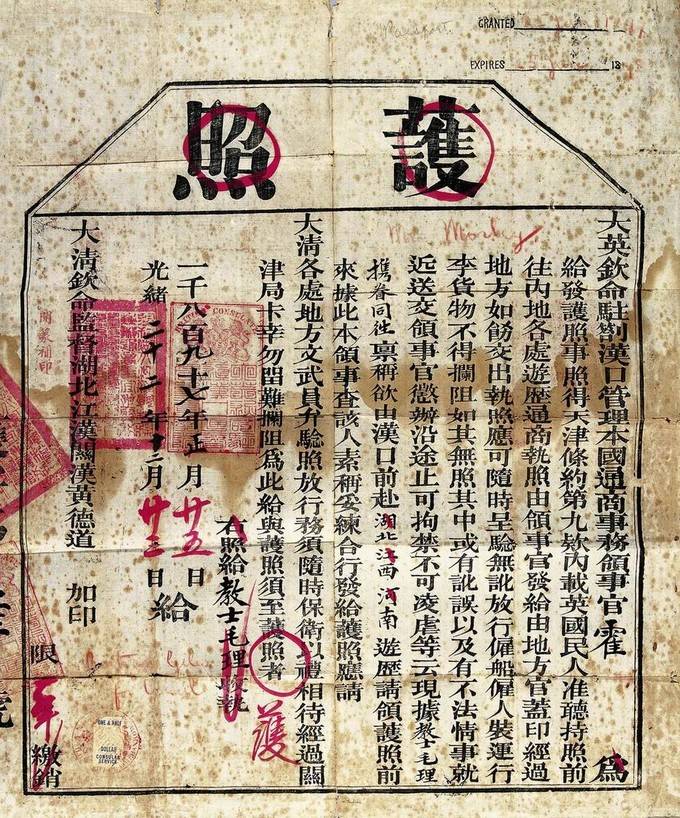 GRANTED
EXPIRES 18
護照
Mr. Morley
大英欽命駐劄漢口管理本國通商事務領事官霍 爲
給發護照事照得天津條約第九欵內載英國民人准聽持照前
往內地各處遊歷通商執照由領事官發給由地方官蓋印經過
地方如飭交出執照應可隨時呈驗無訛放行僱船僱人裝運行
李貨物不得攔阻如其無照其中或有訛誤以及有不法情事就
近送交領事官懲辦沿途止可拘禁不可凌虐等云現據教士毛理
攜眷同往稟稱欲由漢口前赴湖北江西河南遊歷請領護照前
來據此本領事查該人素稱妥練合行發給護照應請
大清各處地方文武員弁驗照放行務須隨時保衛以禮相待經過關
津局卡幸勿留難攔阻爲此給與護照須至護照者
護
右照給教士毛理收執
一千八百九十七年正月廿五日
光緒二十二年十二月廿三日 給
大清欽命監督湖北江漢關漢黃德道 加印
限一年繳銷
ONE & HALF
DOLLAR
CONSULAR
SERVICE